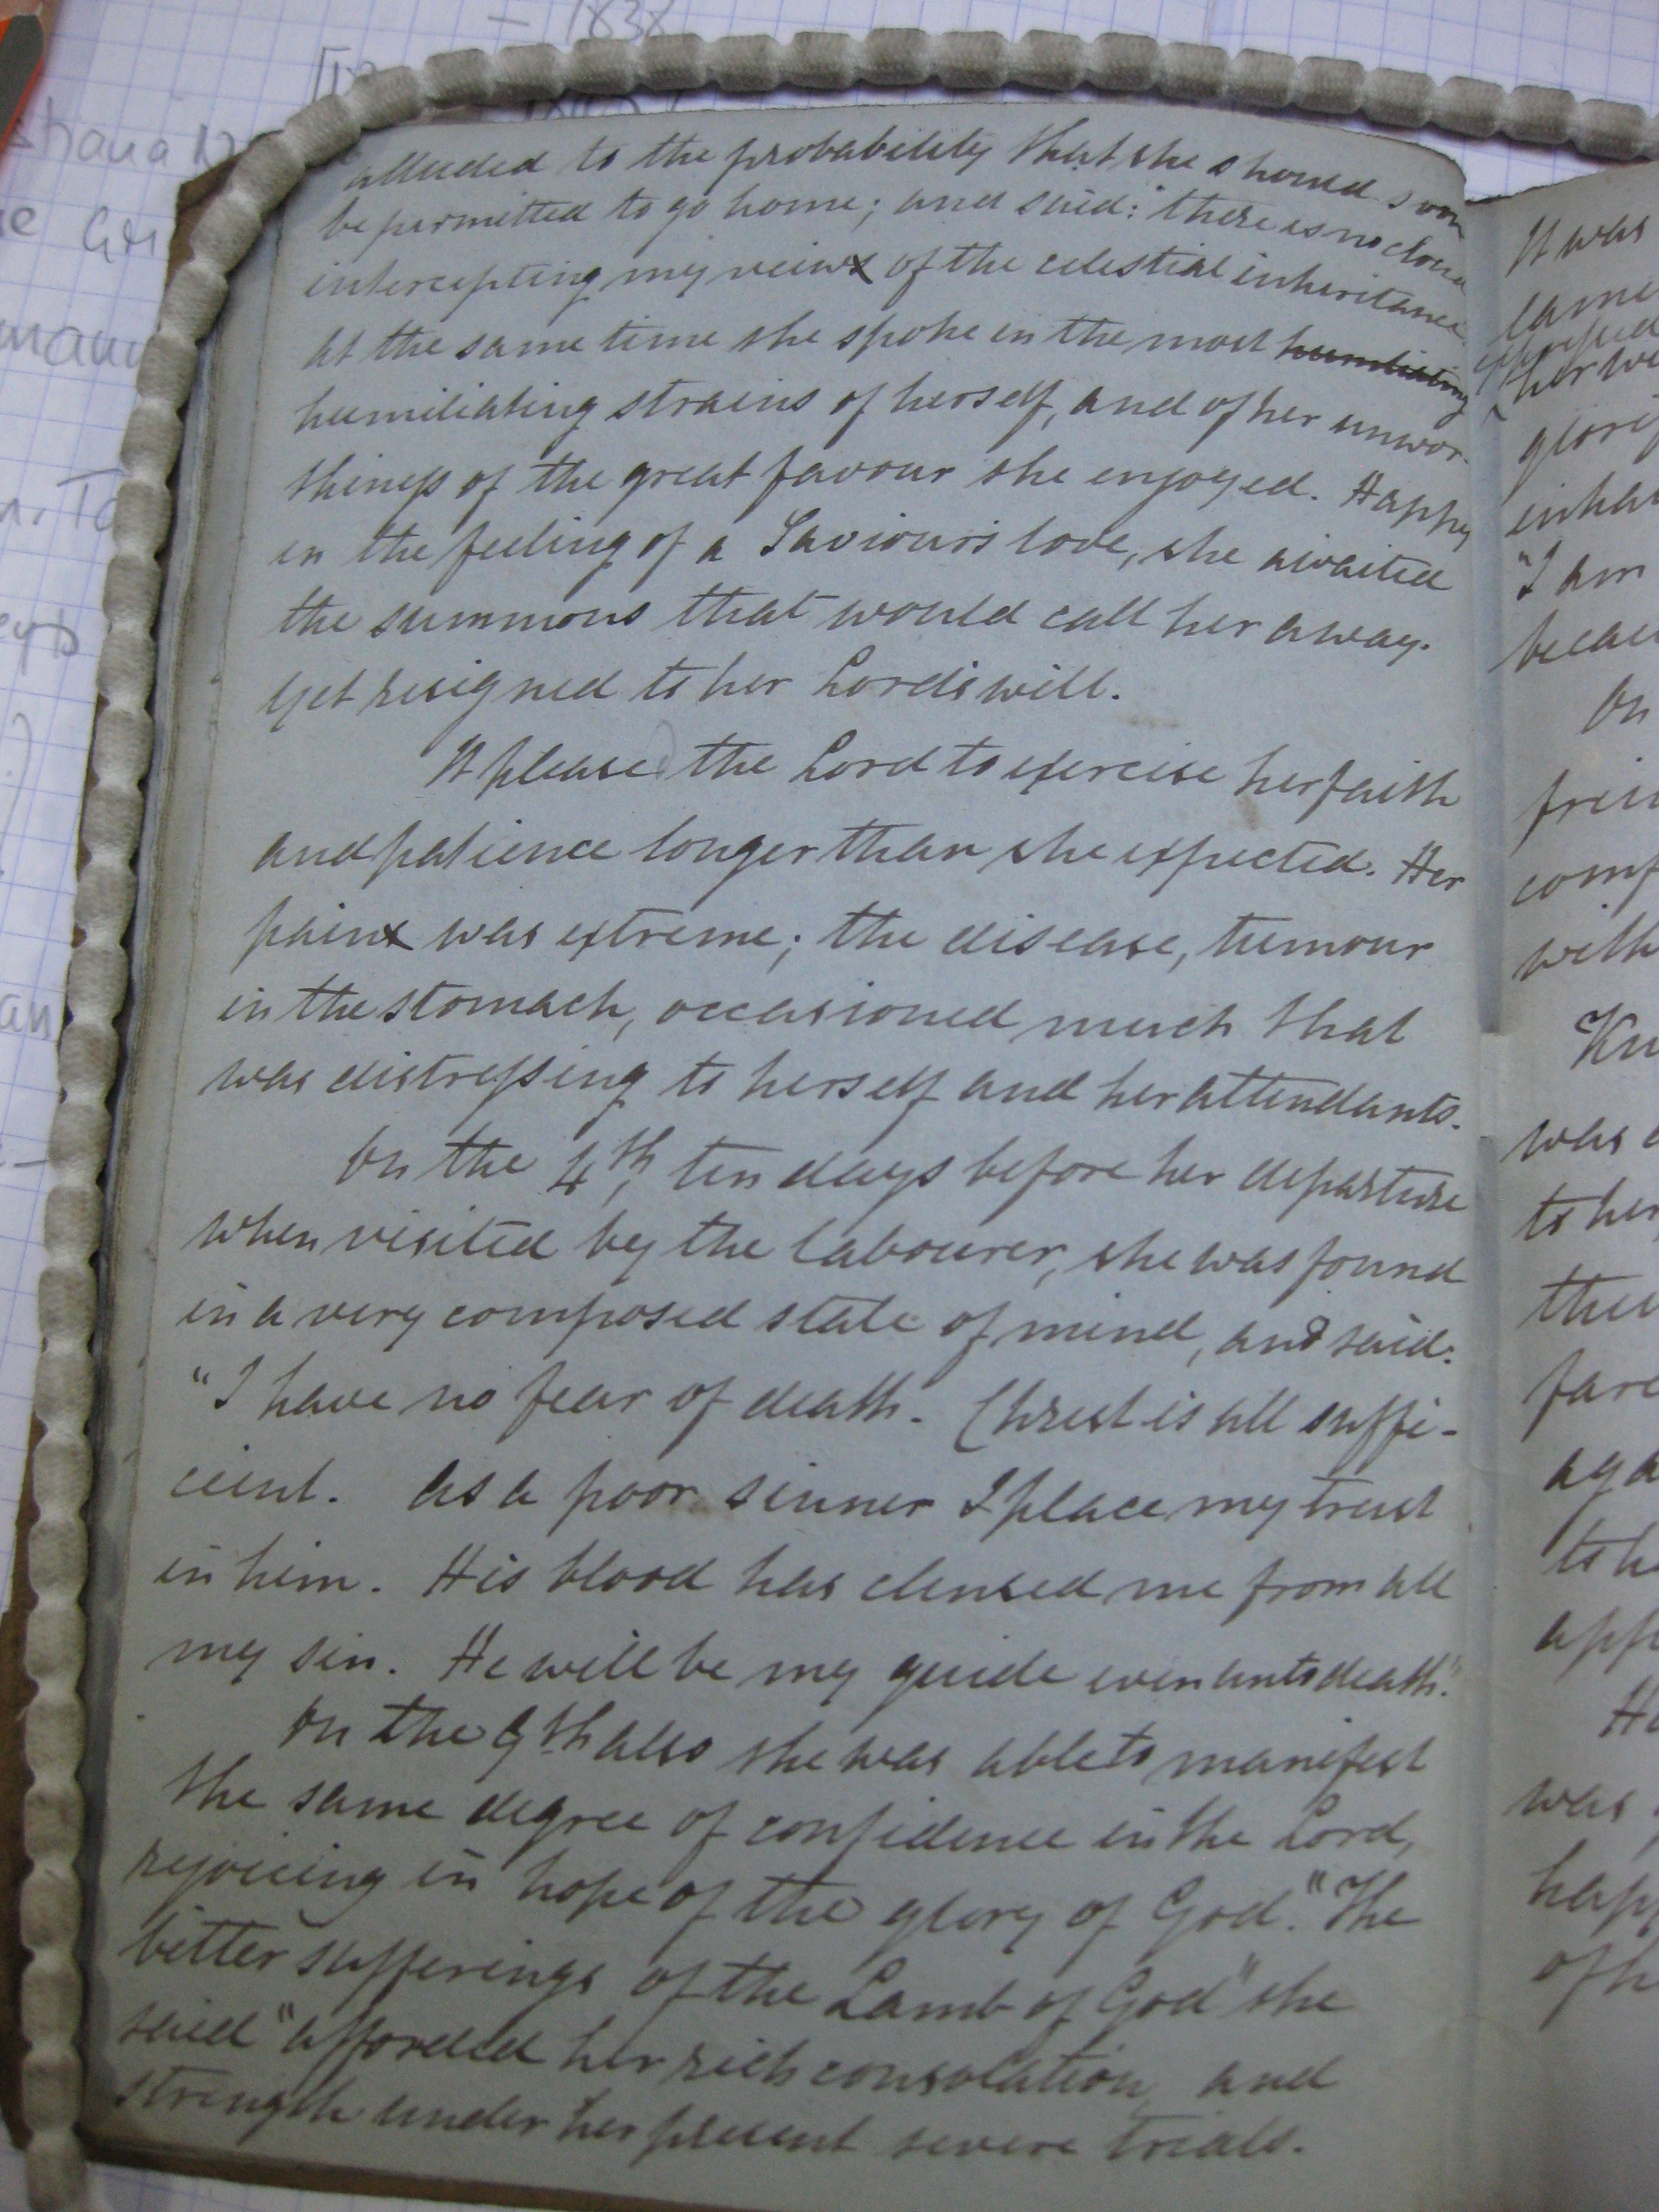 alluded to the probability that she should soon
be permitted to go home; and said: "there is no cloud
intercepting my veiws of the celestial inheritance.
At the same time she spoke in the most humiliating
humiliating strains of herself, and of her unwor-
thiness of the great favour she enjoyed. Happy
in the feeling of a Saviour's love, she awaited
the summons that would call her away.
Yet resigned to her Lord's will.
It please the Lord to exercise her faith
and patience longer than she expected. Her
pains was extreme; the disease, tumour
in the stomach, occasioned much that
was distressing to herself and her attendants.
On the 4th, ten days before her departure
when visited by the labourer, she was found
in a very composed state of mind, and said:
"I have no fear of death. Christ is all suffi-
cient. As a poor sinner I place my trust
in him. His blood has clensed me from all
my sin. He will be my guide even unto death."
On the 9th also she was able to manifest
the same degree of confidence in the Lord,
rejoicing in hope of the glory of God. "The
bitter sufferings of the Lamb of God" she
said "afforded her rich consolation, and
strength under her present severe trials.
It was
her we
"I am
On
with
was
to her
was
1838